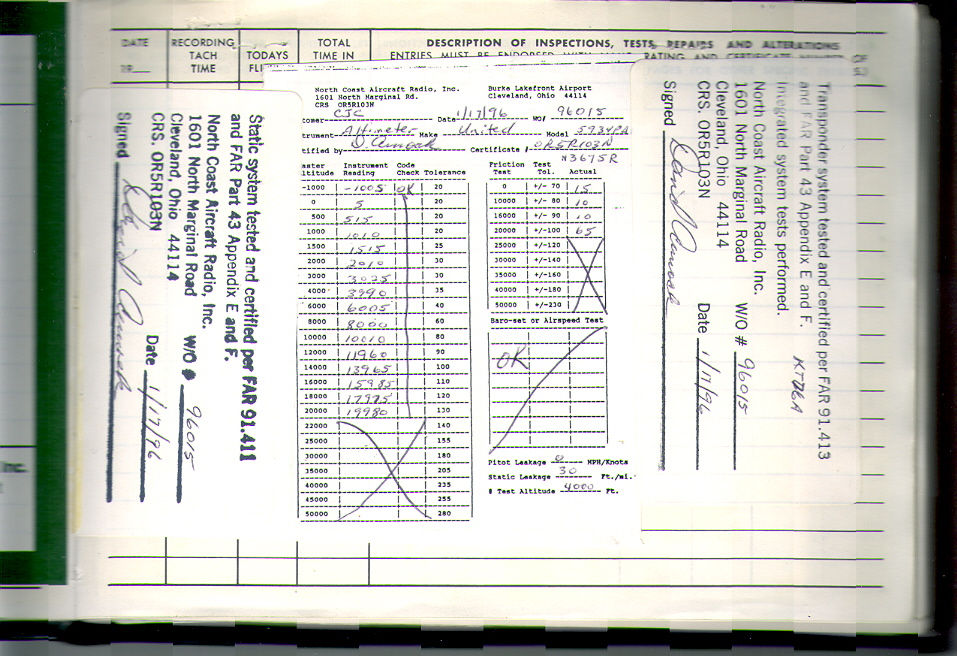 DATE
19__
RECORDING
TACH
TIME
TODAYS
TOTAL
TIME IN
DESCRIPTION OF INSPECTIONS, TESTS, REPAIRS AND ALTERATIONS
ENTRIES MUST BE ENDORSED
RATING AND
Static system tested and certified per FAR 91.411
and FAR Part 43 Appendix E and F.
North Coast Aircraft Radio, Inc.
1601 North Marginal Road W/O # 96015
Cleveland, Ohio 44114
CRS. OR5R103N Date 1/17/96
Signed
North Coast Aircraft Radio, Inc. Burke Lakefront Airport
1601 North Marginal Rd. Cleveland, Ohio 44114
CRS OR5R103N
omer CJC Date 1/17/96 WO# 96015
trument Altimeter Make United Model 5934PA
tified by Certificate # OR5R103N
N3675R
aster Instrument Code
ltitude Reading Check Tolerance
-1000 -1005 OK 20
0 5 20
500 515 20
1000 1010 20
1500 1515 25
2000 2010 30
3000 3025 30
4000 3990 35
6000 6005 40
8000 8000 60
10000 10010 80
12000 11960 90
14000 13965 100
16000 15985 110
18000 17975 120
20000 19980 130
22000 140
25000 155
30000 180
35000 205
40000 230
45000 255
50000 280
Friction Test
Test Tol. Actual
0 +/- 70 15
10000 +/- 80 10
16000 +/- 90 10
20000 +/-100 65
25000 +/-120
30000 +/-140
35000 +/-160
40000 +/-180
50000 +/-230
Baro-set or Airspeed Test
OK
Pitot Leakage 0 MPH/Knots
Static Leakage 30 Ft./mi.
@ Test Altitude 4000 Ft.
Transponder system tested and certified per FAR 91.413
and FAR Part 43 Appendix E and F.
Integrated system tests performed.
North Coast Aircraft Radio, Inc.
1601 North Marginal Road W/O # 96015
Cleveland, Ohio 44114
CRS. OR5R103N Date 1/17/96
Signed